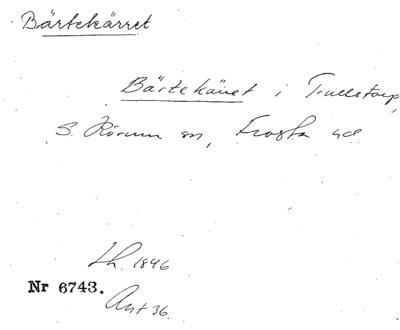 Bärtekärret
Bärtekärret i Trulstorp,
S. Rörum sn, Frosta hd
Lh. 1846
Nr 6743.
Ant 36.